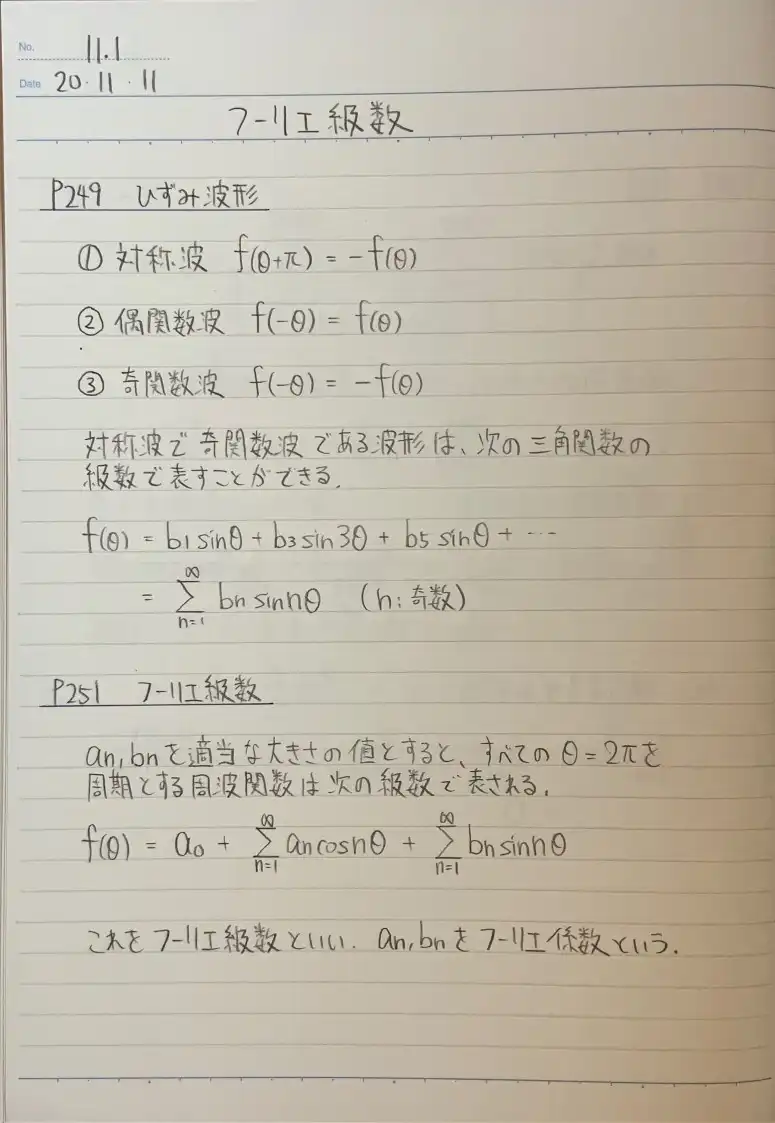 No. 11.1
Date 20・11・11
フーリエ級数
P249 ひずみ波形
① 対称波 f(θ+π) = -f(θ)
② 偶関数波 f(-θ) = f(θ)
③ 奇関数波 f(-θ) = -f(θ)
対称波で奇関数波である波形は、次の三角関数の
級数で表すことができる.
f(θ) = b1 sinθ + b3 sin3θ + b5 sinθ + …
= ∑_{n=1}^{∞} bn sin nθ (n: 奇数)
P251 フーリエ級数
an, bnを適当な大きさの値とすると、すべての θ=2πを
周期とする周波関数は次の級数で表される.
f(θ) = a0 + ∑_{n=1}^{∞} an cos nθ + ∑_{n=1}^{∞} bn sin nθ
これをフーリエ級数といい. an, bnをフーリエ係数という.